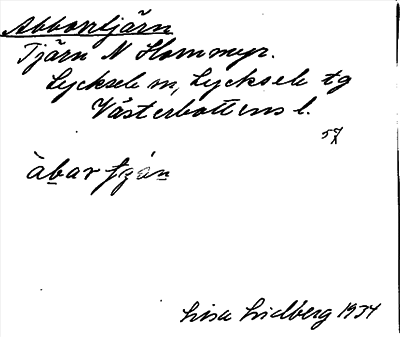 Abborrtjärn
Tjärn N Hornmyr.
Lycksele sn, Lycksele tg
Västerbottens l.
57
àbar
Lisa Lidberg 1934